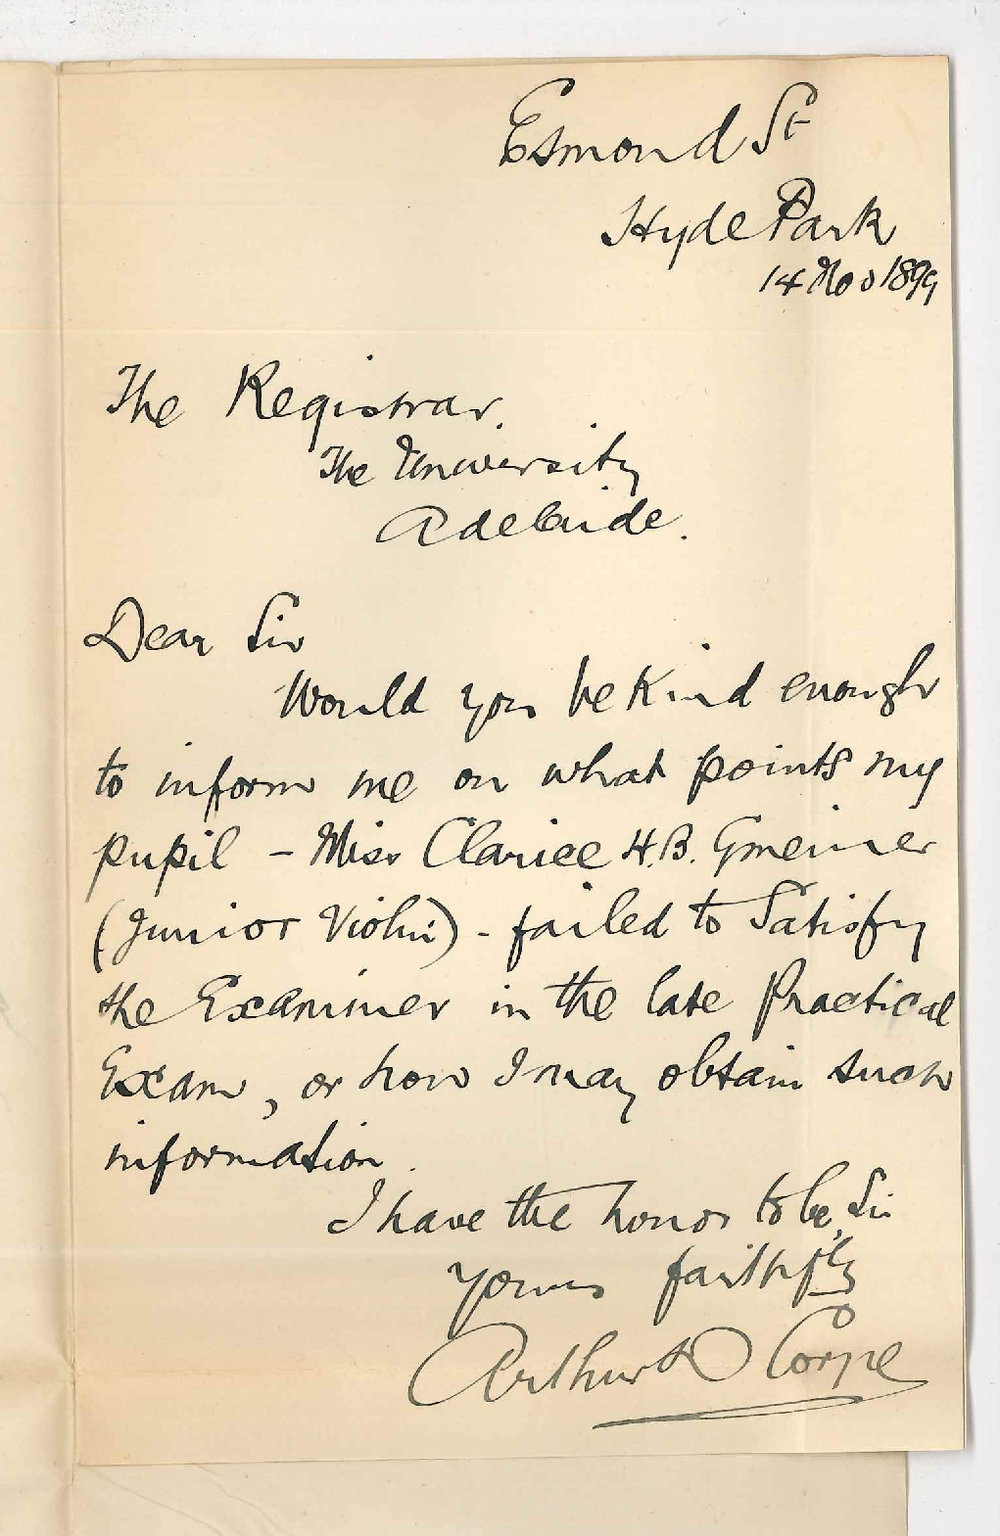 Esmond St
Hyde Park
14 Nov 1899
The Registrar.
The University
Adelaide.
Dear Sir
Would you be kind enough
to inform me on what points my
pupil - Miss Clarice H.B. Gmeiner
(Junior Violin) - failed to Satisfy
the Examiner in the late Practical
Exam, or how I may obtain such
information.
I have the honor to be, Sir
yours faithfly
Arthur D Corpe